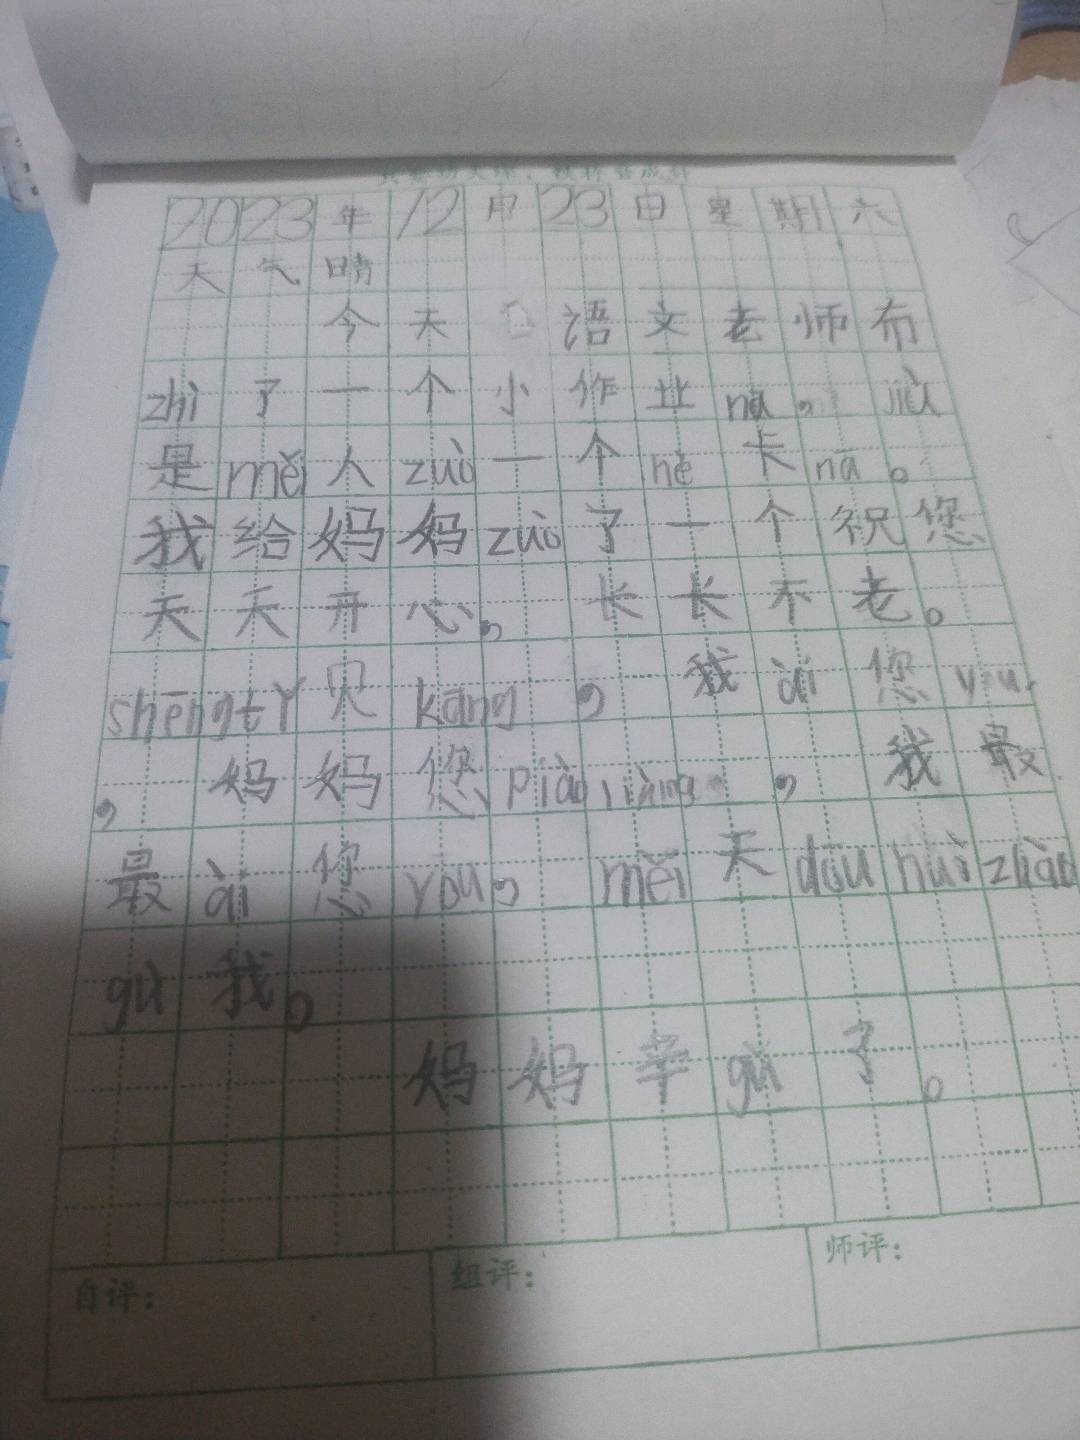 2023年12月23日星期六
天气晴
今天语文老师布
zhì了一个小作业na，jiù
是měi人zuò一个hè卡nā。
我给妈妈zuò了一个祝您
天天开心，长长不老。
shēngtǐ见kāng，我ài您you
，妈妈您piàoliàng，我最
最ài您yōu，měi天dōuhuìzhào
gù我。
妈妈辛gǔ了。
自评：
组评：
师评：